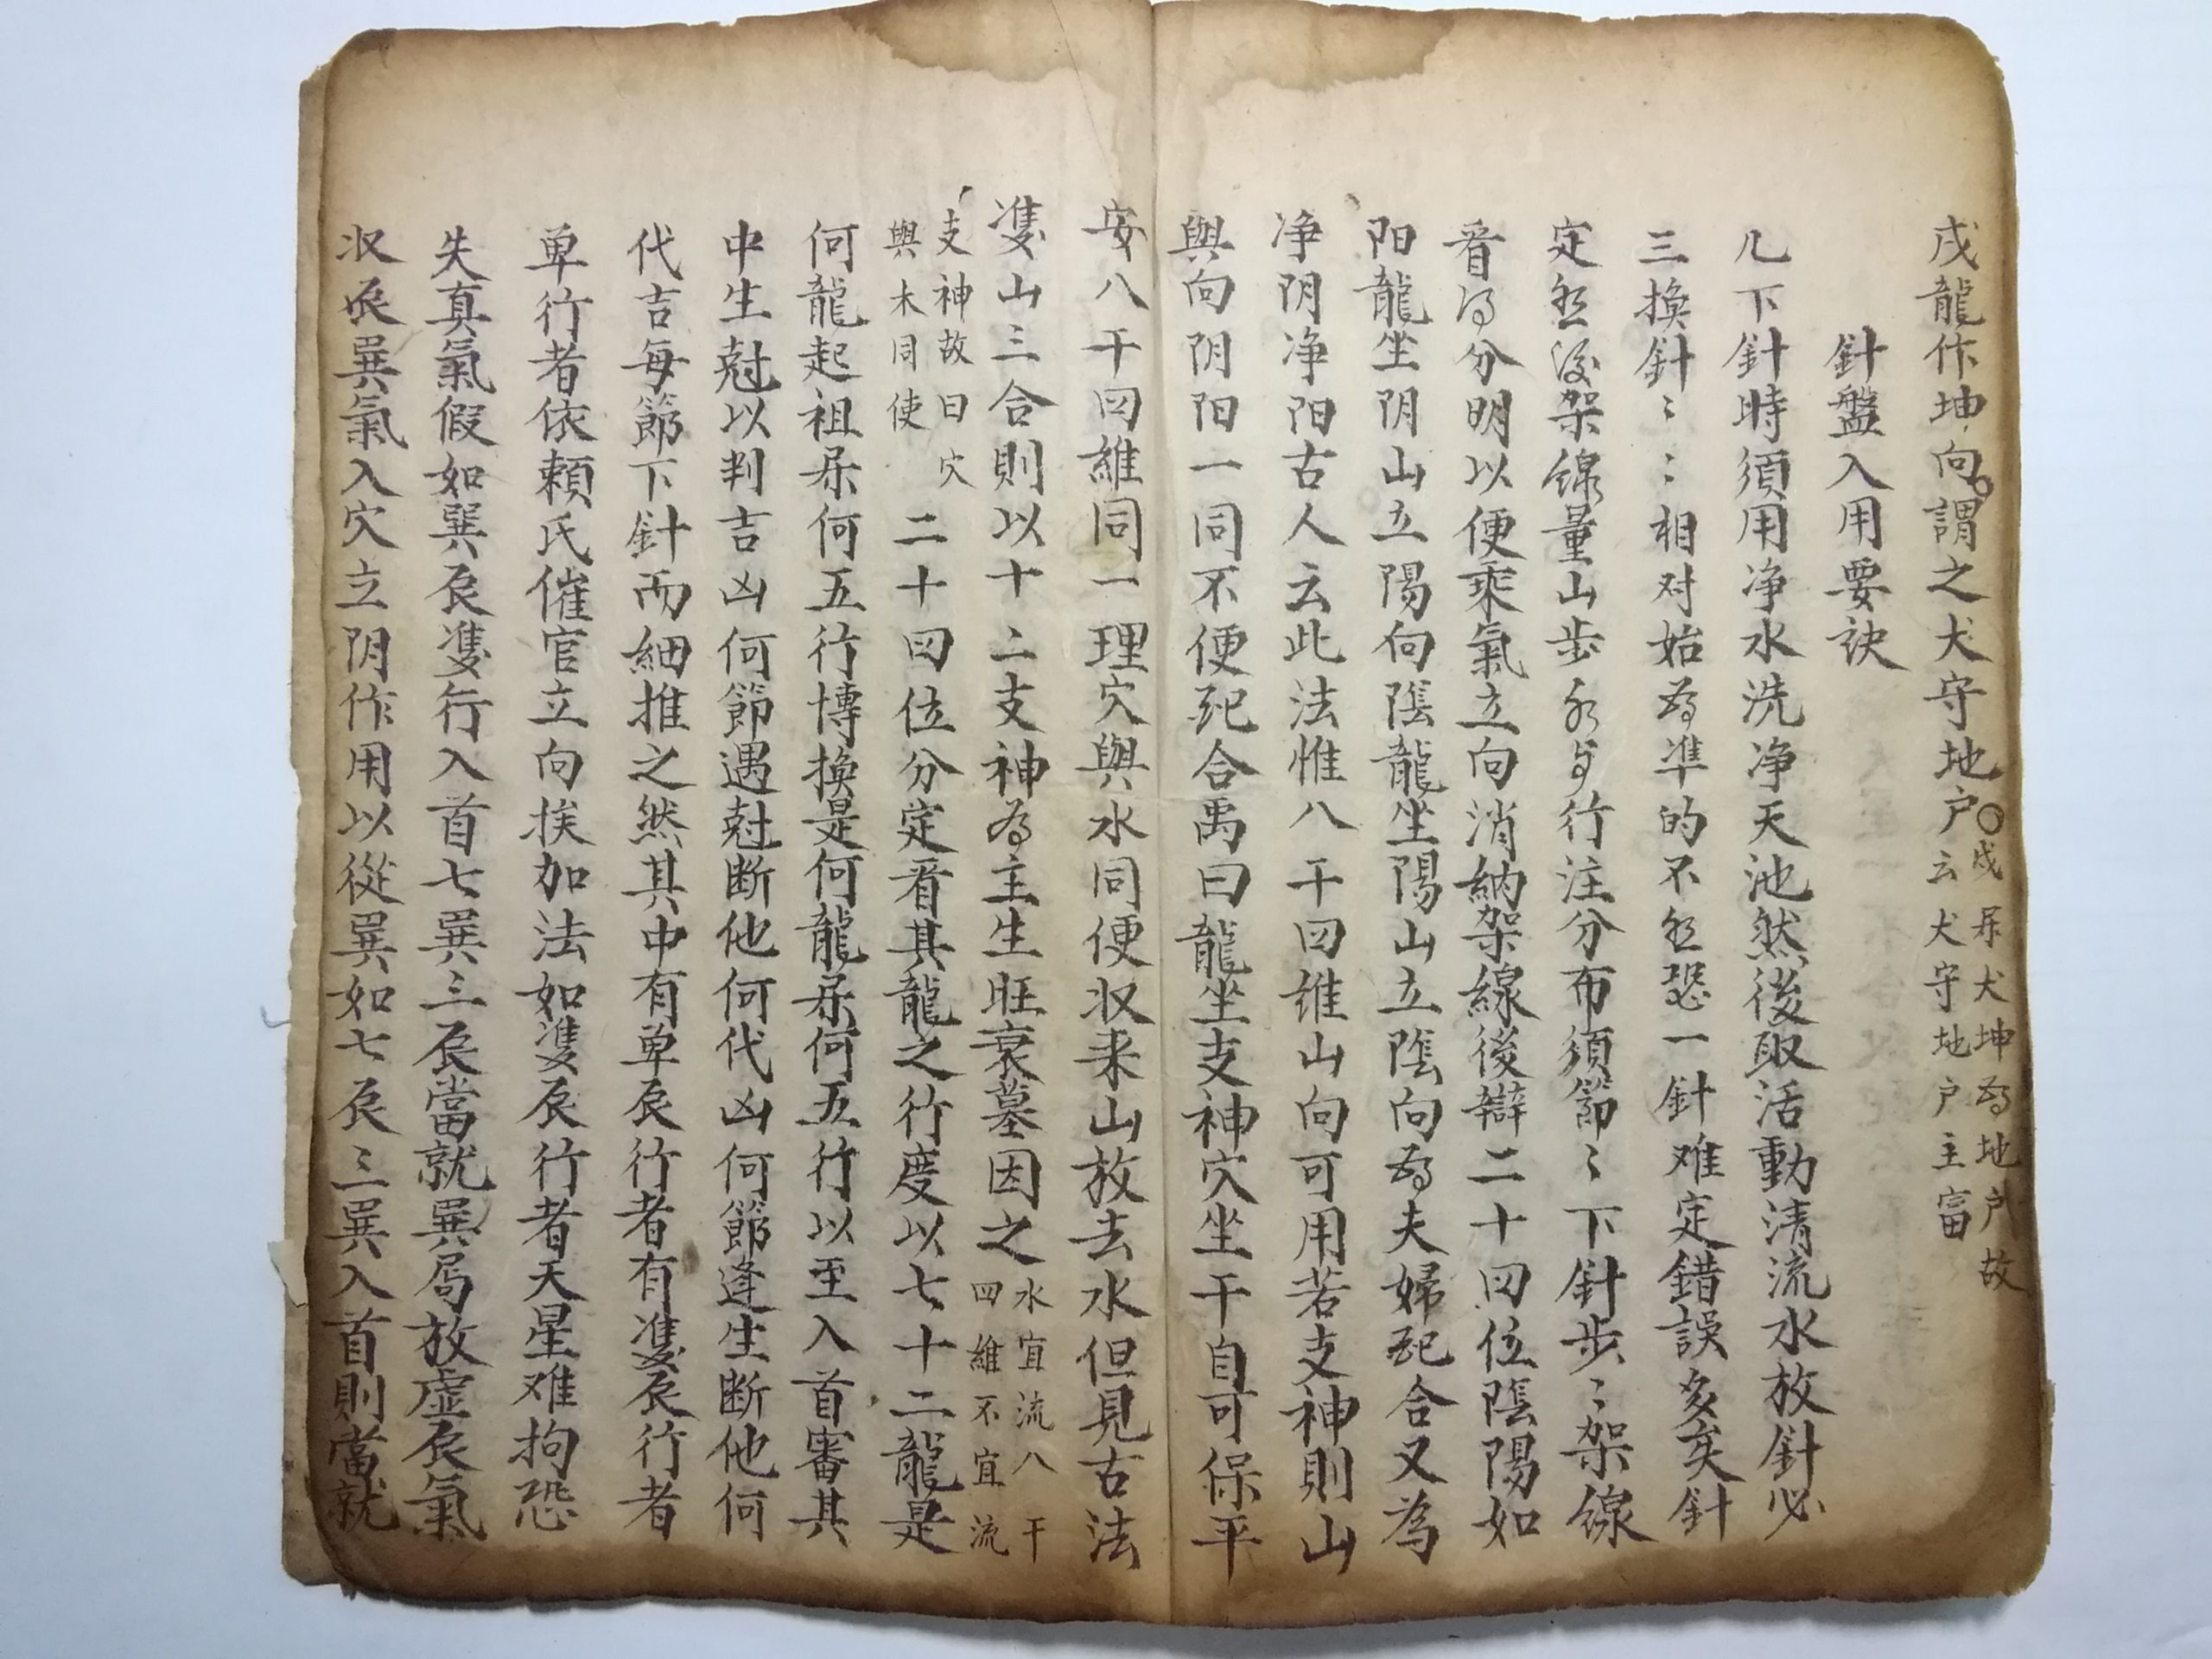 戌龍作坤向謂之犬守地户
戌屬犬坤為地户故
云犬守地户主富
針盤入用要訣
凢下針時須用净水洗净天池然後取活動清流水放針必
三換針〻〻相对始為準的不然恐一針难定錯誤多矣針
定然後架線量山步水步行注分布須節〻下針步〻架線
看得分明以便乘氣立向消納架線後辯二十四位陰陽如
阳龍坐阴山立陽向陰龍坐陽山立陰向為夫婦配合又為
净阴净阳古人云此法惟八干四維山向可用若支神則山
與向阴阳一同不便配合禹曰龍坐支神穴坐干自可保平
安八干四維同一理穴與水同便収来山放去水但見古法
雙山三合則以十二支神為主生旺衰墓因之
水宜流八干
四維不宜流
支神故曰穴
與木同使
二十四位分定看其龍之行度以七十二龍是
何龍起祖属何五行博換是何龍属何五行以至入首審其
中生尅以判吉凶何節遇尅断他何代凶何節逢生断他何
代吉每節下針而細推之然其中有单辰行者有雙辰行者
单行者依頼氏催官立向挨加法如雙辰行者天星难拘恐
失真氣假如巽辰雙行入首七巽三辰當就巽局放虚辰氣
収辰巽氣入穴立阴作用以從巽如七辰三巽入首則當就